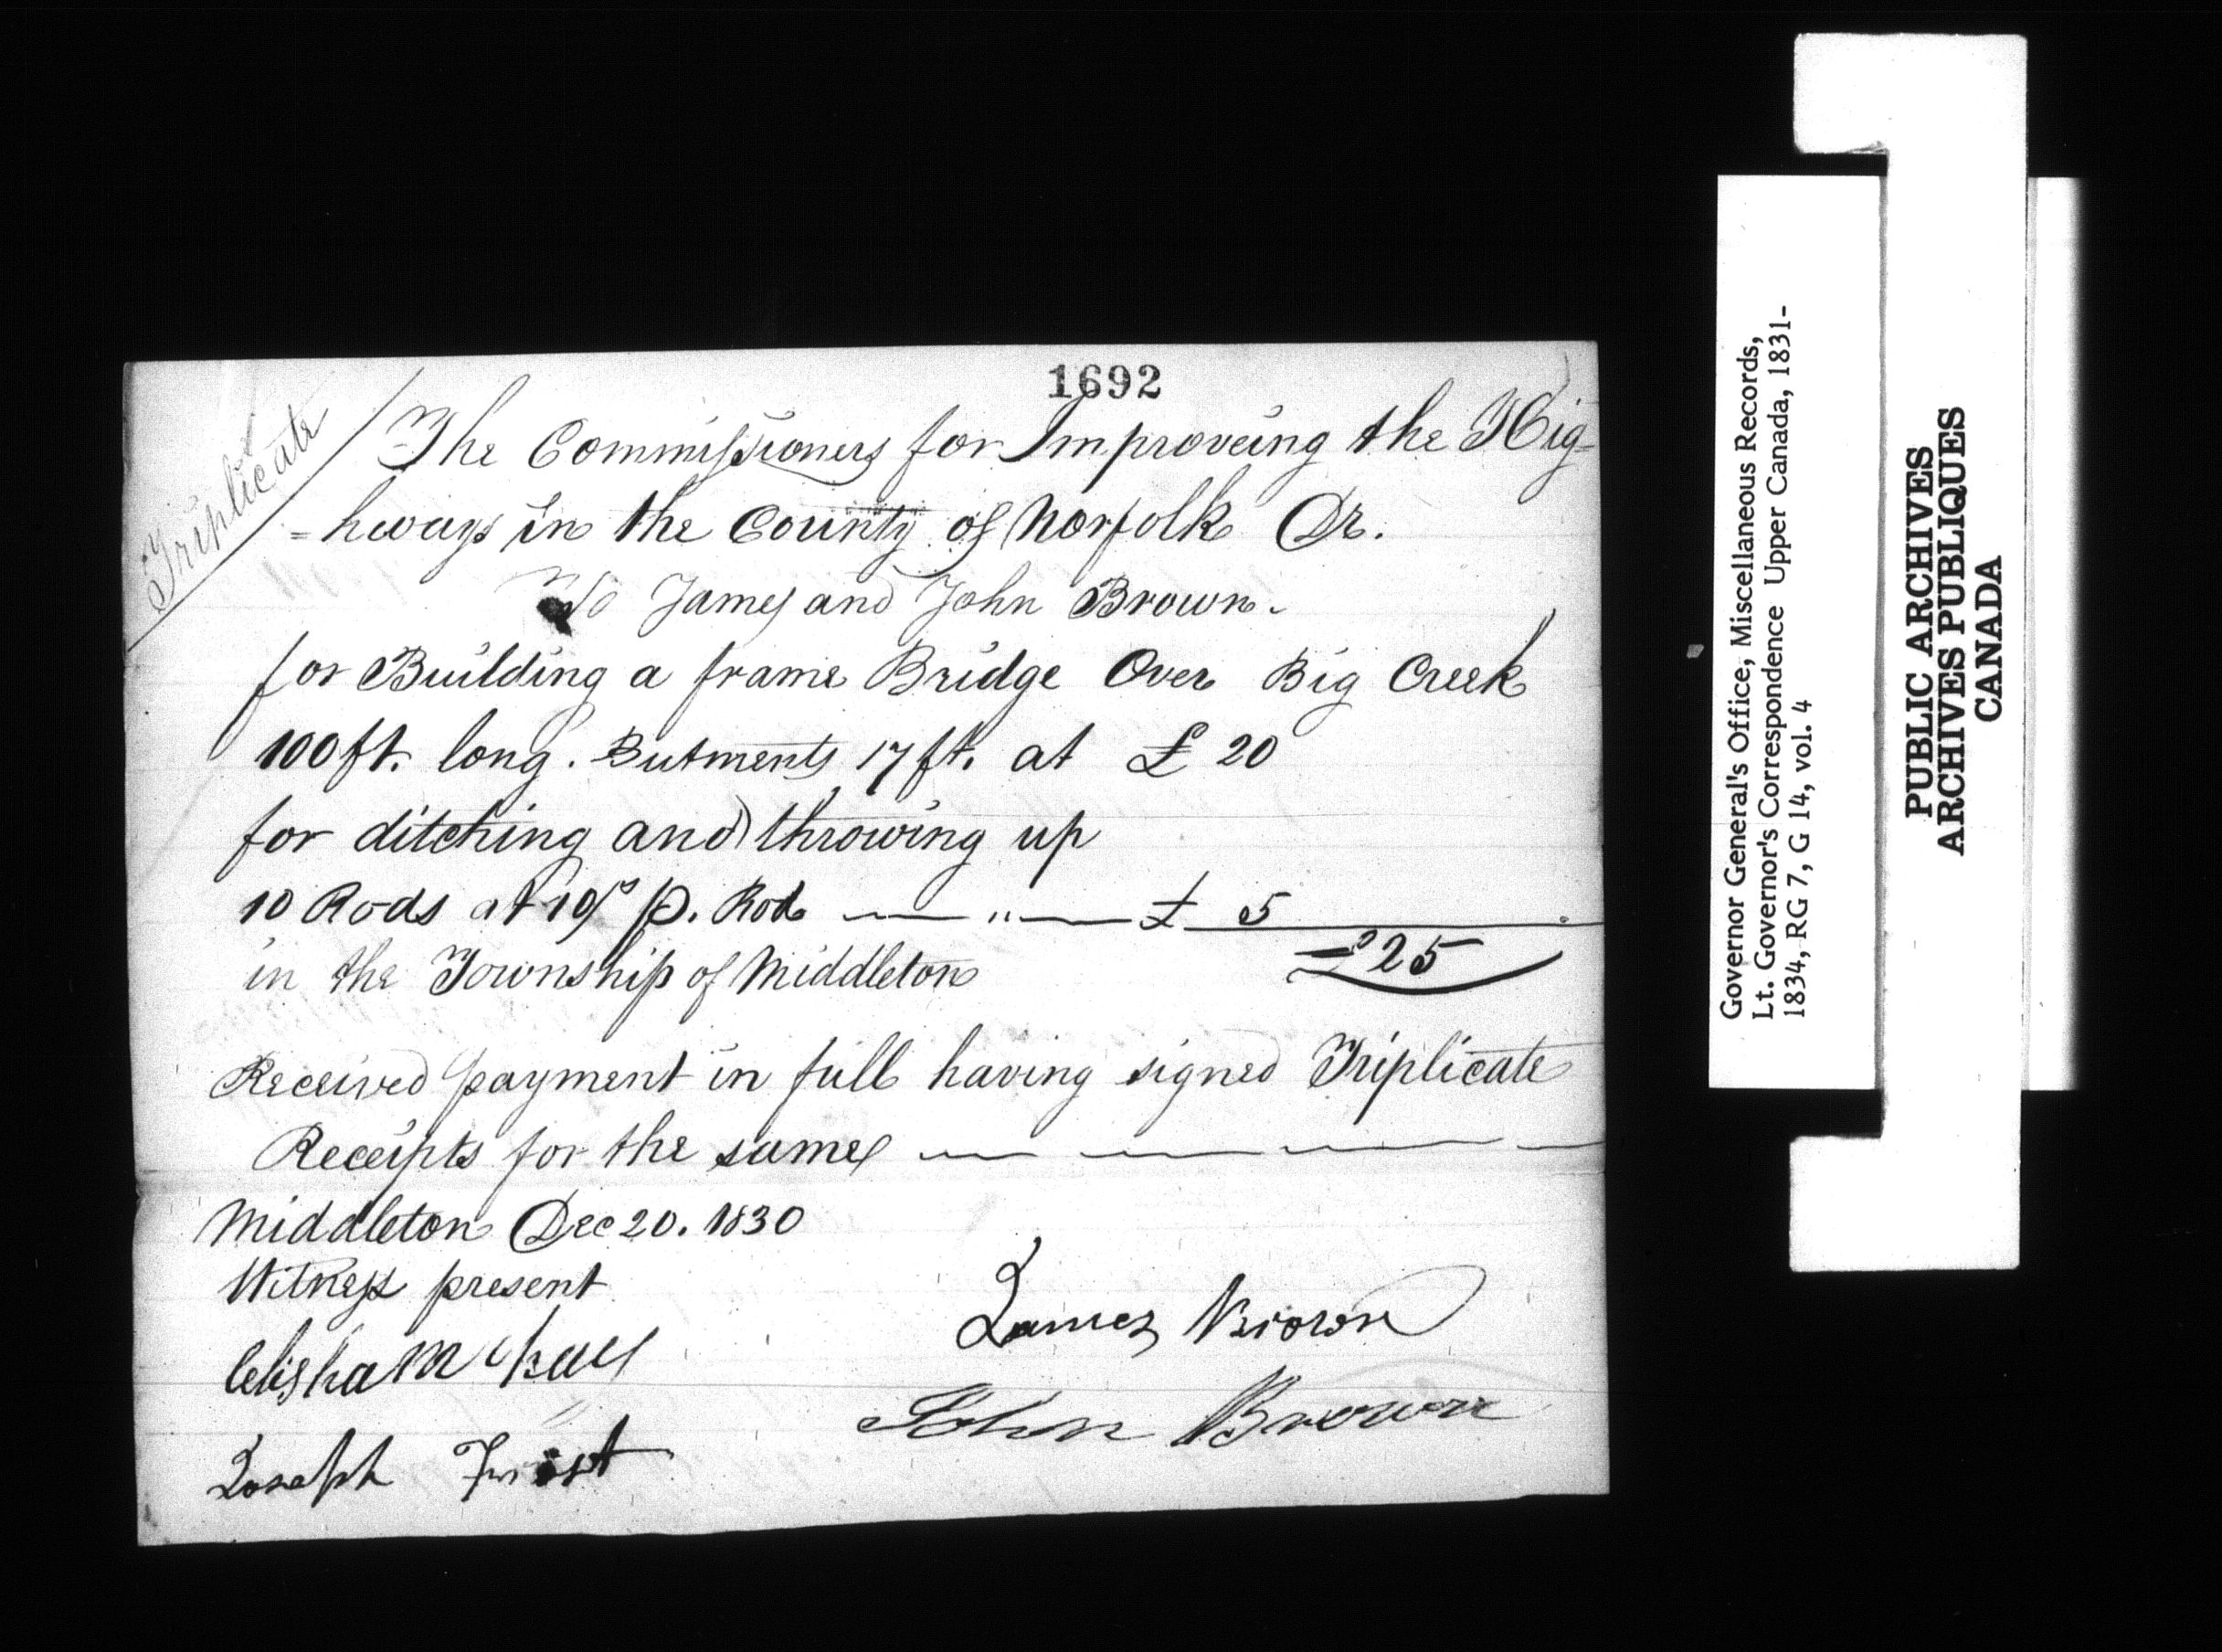 1692
Triplicate
The Commissioners for Improveing the Hig=
=hways in the County of Norfolk Dr.
To James and John Brown.
for Building a frame Bridge Over Big Creek
100 ft. long. Butments 17 ft. at £ 20
for ditching and throwing up
10 Rods at 10/ p. Rod — " — £ 5
£25
in the Township of Middleton
Received payment in full having signed Triplicate
Receipts for the same
Middleton Dec 20. 1830
Witness present
Elisha M
James Brown
John Brown
Joseph Frost
Governor General's Office, Miscellaneous Records,
Lt. Governor's Correspondence Upper Canada, 1831-
1834, RG 7, G 14, vol. 4
PUBLIC ARCHIVES
ARCHIVES PUBLIQUES
CANADA